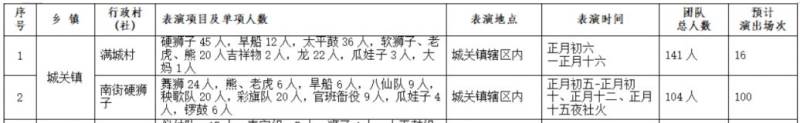 序号 乡 镇 行政村(社) 表演项目及单项人数 表演地点 表演时间 团队总人数 预计演出场次
1 城关镇 满城村 硬狮子 45 人，旱船 12 人，太平鼓 36 人，软狮子、老
虎、熊 20 人吉祥物 2 人，龙 22 人，瓜娃子 3 人，大
妈 1 人
城关镇辖区内 正月初六
—正月十六
141 人 16
2 南街硬狮子 舞狮 24 人，熊、老虎 6 人，旱船 6 人，八仙队 9 人，
秧歌队 20 人，彩旗队 20 人，官班衙役 9 人，瓜娃子 4
人，锣鼓 6 人
城关镇辖区内 正月初五-正月初
十、正月十二、正月
十五夜社火
104 人 100